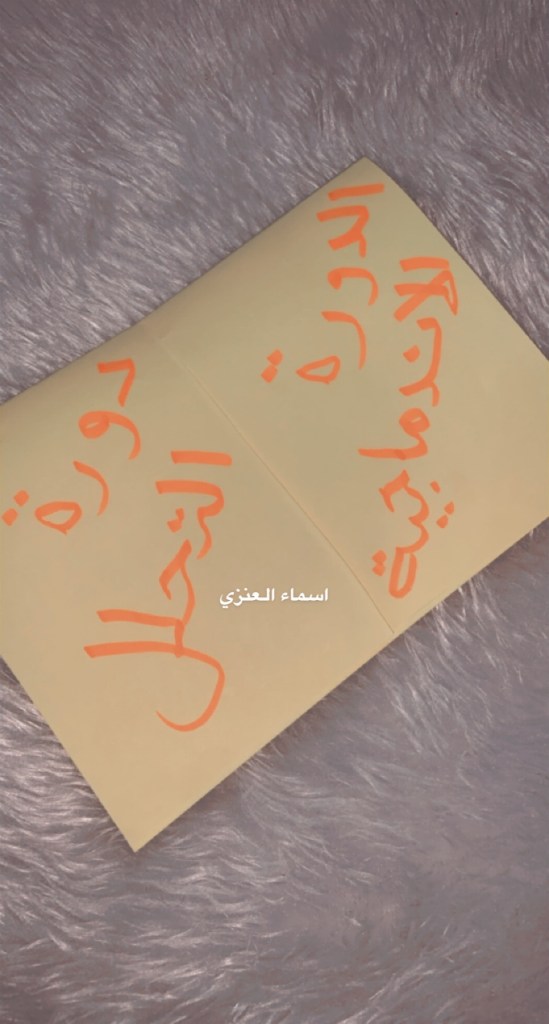 الدورة
الاندماجية
دورة
التحلل
اسماء العنزي